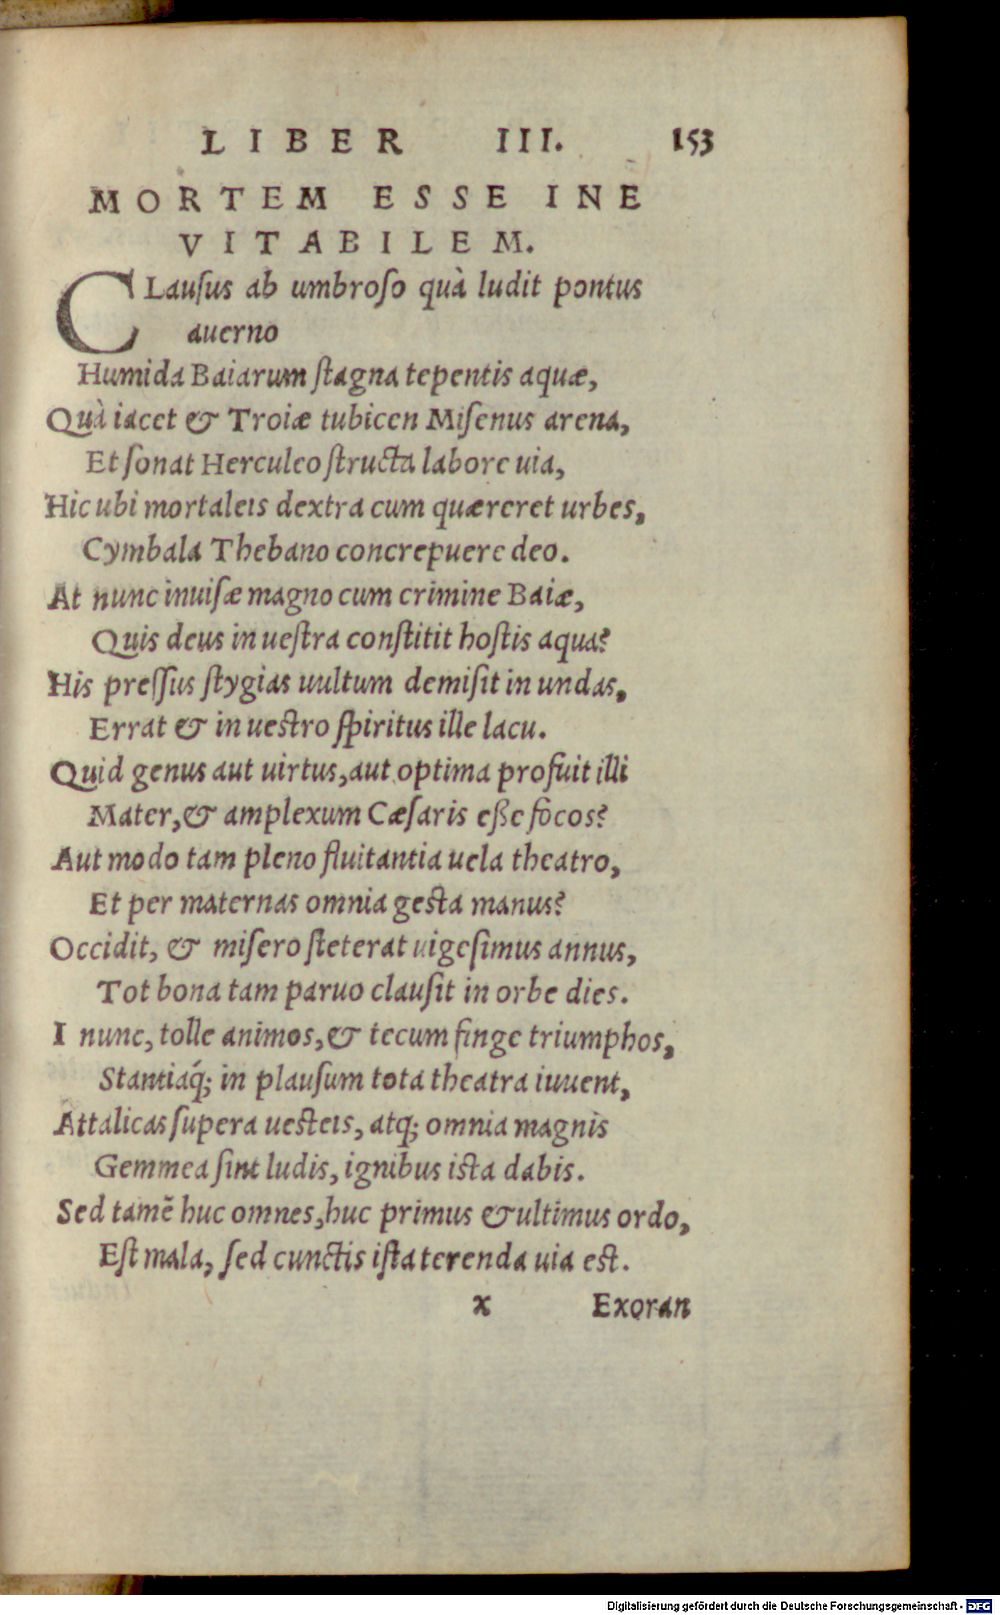 LIBER III. 153
MORTEM ESSE INE
VITABILEM.
CLausus ab umbroso quà ludit pontus
auerno
Humida Baiarum stagna tepentis aquæ,
Quà iacet & Troiæ tubicen Misenus arena,
Et sonat Herculeo structa labore uia,
Hic ubi mortaleis dextra cum quæreret urbes,
Cymbala Thebano concrepuere deo.
At nunc inuisæ magno cum crimine Baiæ,
Quis deus in uestra constitit hostis aqua?
His pressus stygias uultum demisit in undas,
Errat & in uestro spiritus ille lacu.
Quid genus aut uirtus, aut optima profuit illi
Mater, & amplexum Cæsaris eße focos?
Aut modo tam pleno fluitantia uela theatro,
Et per maternas omnia gesta manus?
Occidit, & misero steterat uigesimus annus,
Tot bona tam paruo clausit in orbe dies.
I nunc, tolle animos, & tecum finge triumphos,
Stantiaq́; in plausum tota theatra iuuent,
Attalicas supera uesteis, atq; omnia magnis
Gemmea sint ludis, ignibus ista dabis.
Sed tamẽ huc omnes, huc primus & ultimus ordo,
Est mala, sed cunctis ista terenda uia est.
x Exoran
Digitalisierung gefördert durch die Deutsche Forschungsgemeinschaft - DFG